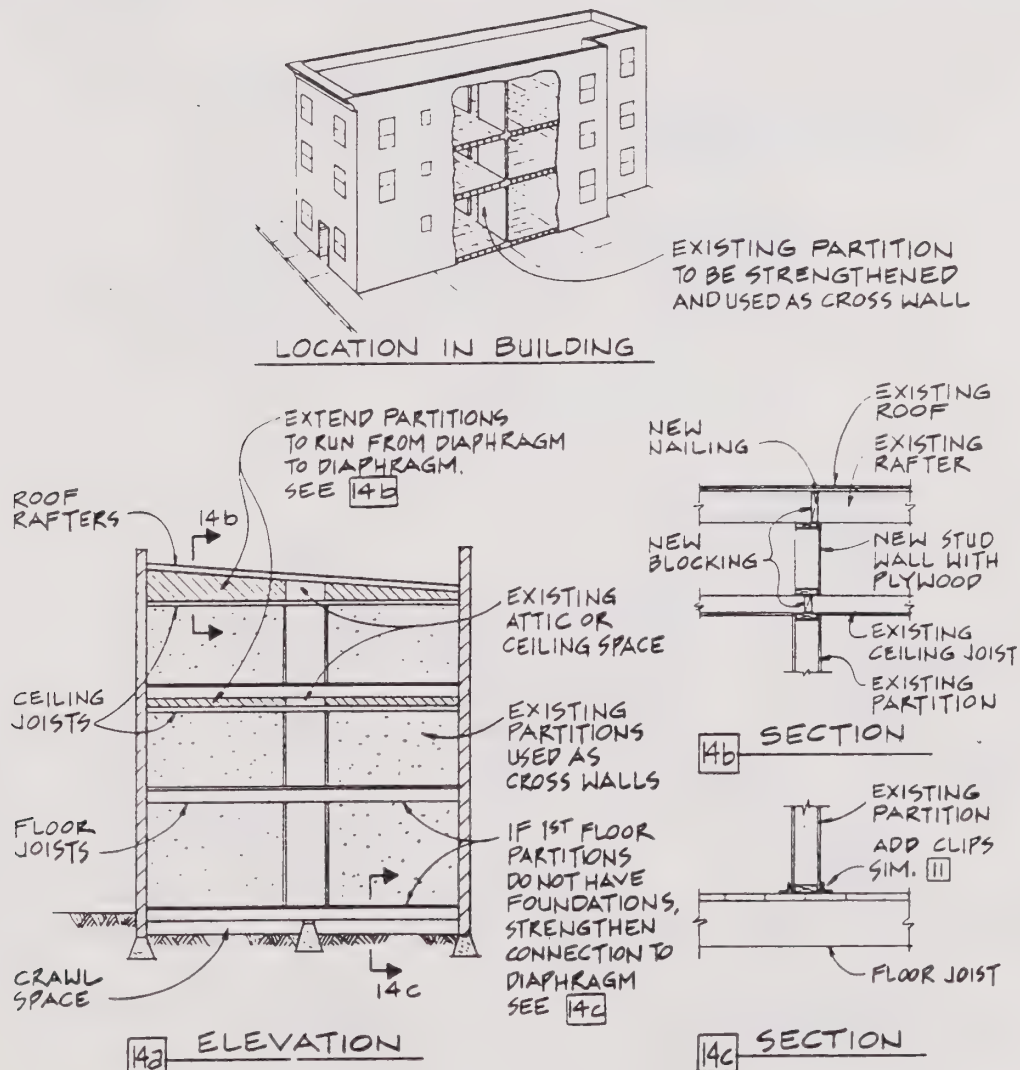 EXISTING PARTITION
TO BE STRENGTHENED
AND USED AS CROSS WALL
LOCATION IN BUILDING
EXTEND PARTITIONS
TO RUN FROM DIAPHRAGM
TO DIAPHRAGM.
SEE 14b
ROOF
RAFTERS
14b
EXISTING
ATTIC OR
CEILING SPACE
CEILING
JOISTS
EXISTING
PARTITIONS
USED AS
CROSS WALLS
FLOOR
JOISTS
IF 1ST FLOOR
PARTITIONS
DO NOT HAVE
FOUNDATIONS,
STRENGTHEN
CONNECTION TO
DIAPHRAGM
SEE 14c
CRAWL
SPACE
14c
14a ELEVATION
EXISTING
ROOF
NEW
NAILING
EXISTING
RAFTER
NEW
BLOCKING
NEW STUD
WALL WITH
PLYWOOD
EXISTING
CEILING JOIST
EXISTING
PARTITION
14b SECTION
EXISTING
PARTITION
ADD CLIPS
SIM. 11
FLOOR JOIST
14c SECTION